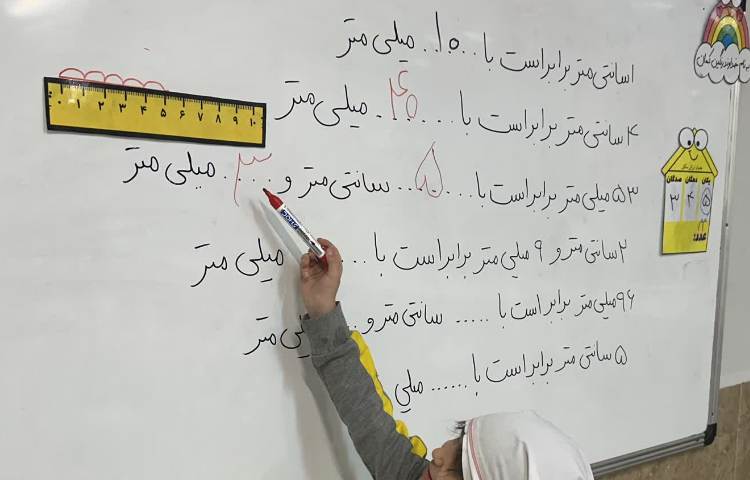 ۱سانتی متر برابر است با ..۱۰.. میلی متر
۴سانتی متر برابر است با ..۴۰... میلی متر
۵۳ میلی متر برابر است با ..۵... سانتی متر و ..۳.. میلی متر
۲سانتی متر و ۹ میلی متر برابر است با .... میلی متر
۹۶میلی متر برابر است با ..... سانتی متر و ... میلی متر
۵ سانتی متر برابر است با ...... میلی
۰ ۱ ۲ ۳ ۴ ۵ ۶ ۷ ۸ ۹ ۱۰
یکان دهگان صدگان
۵ ۴ ۳
عدد: